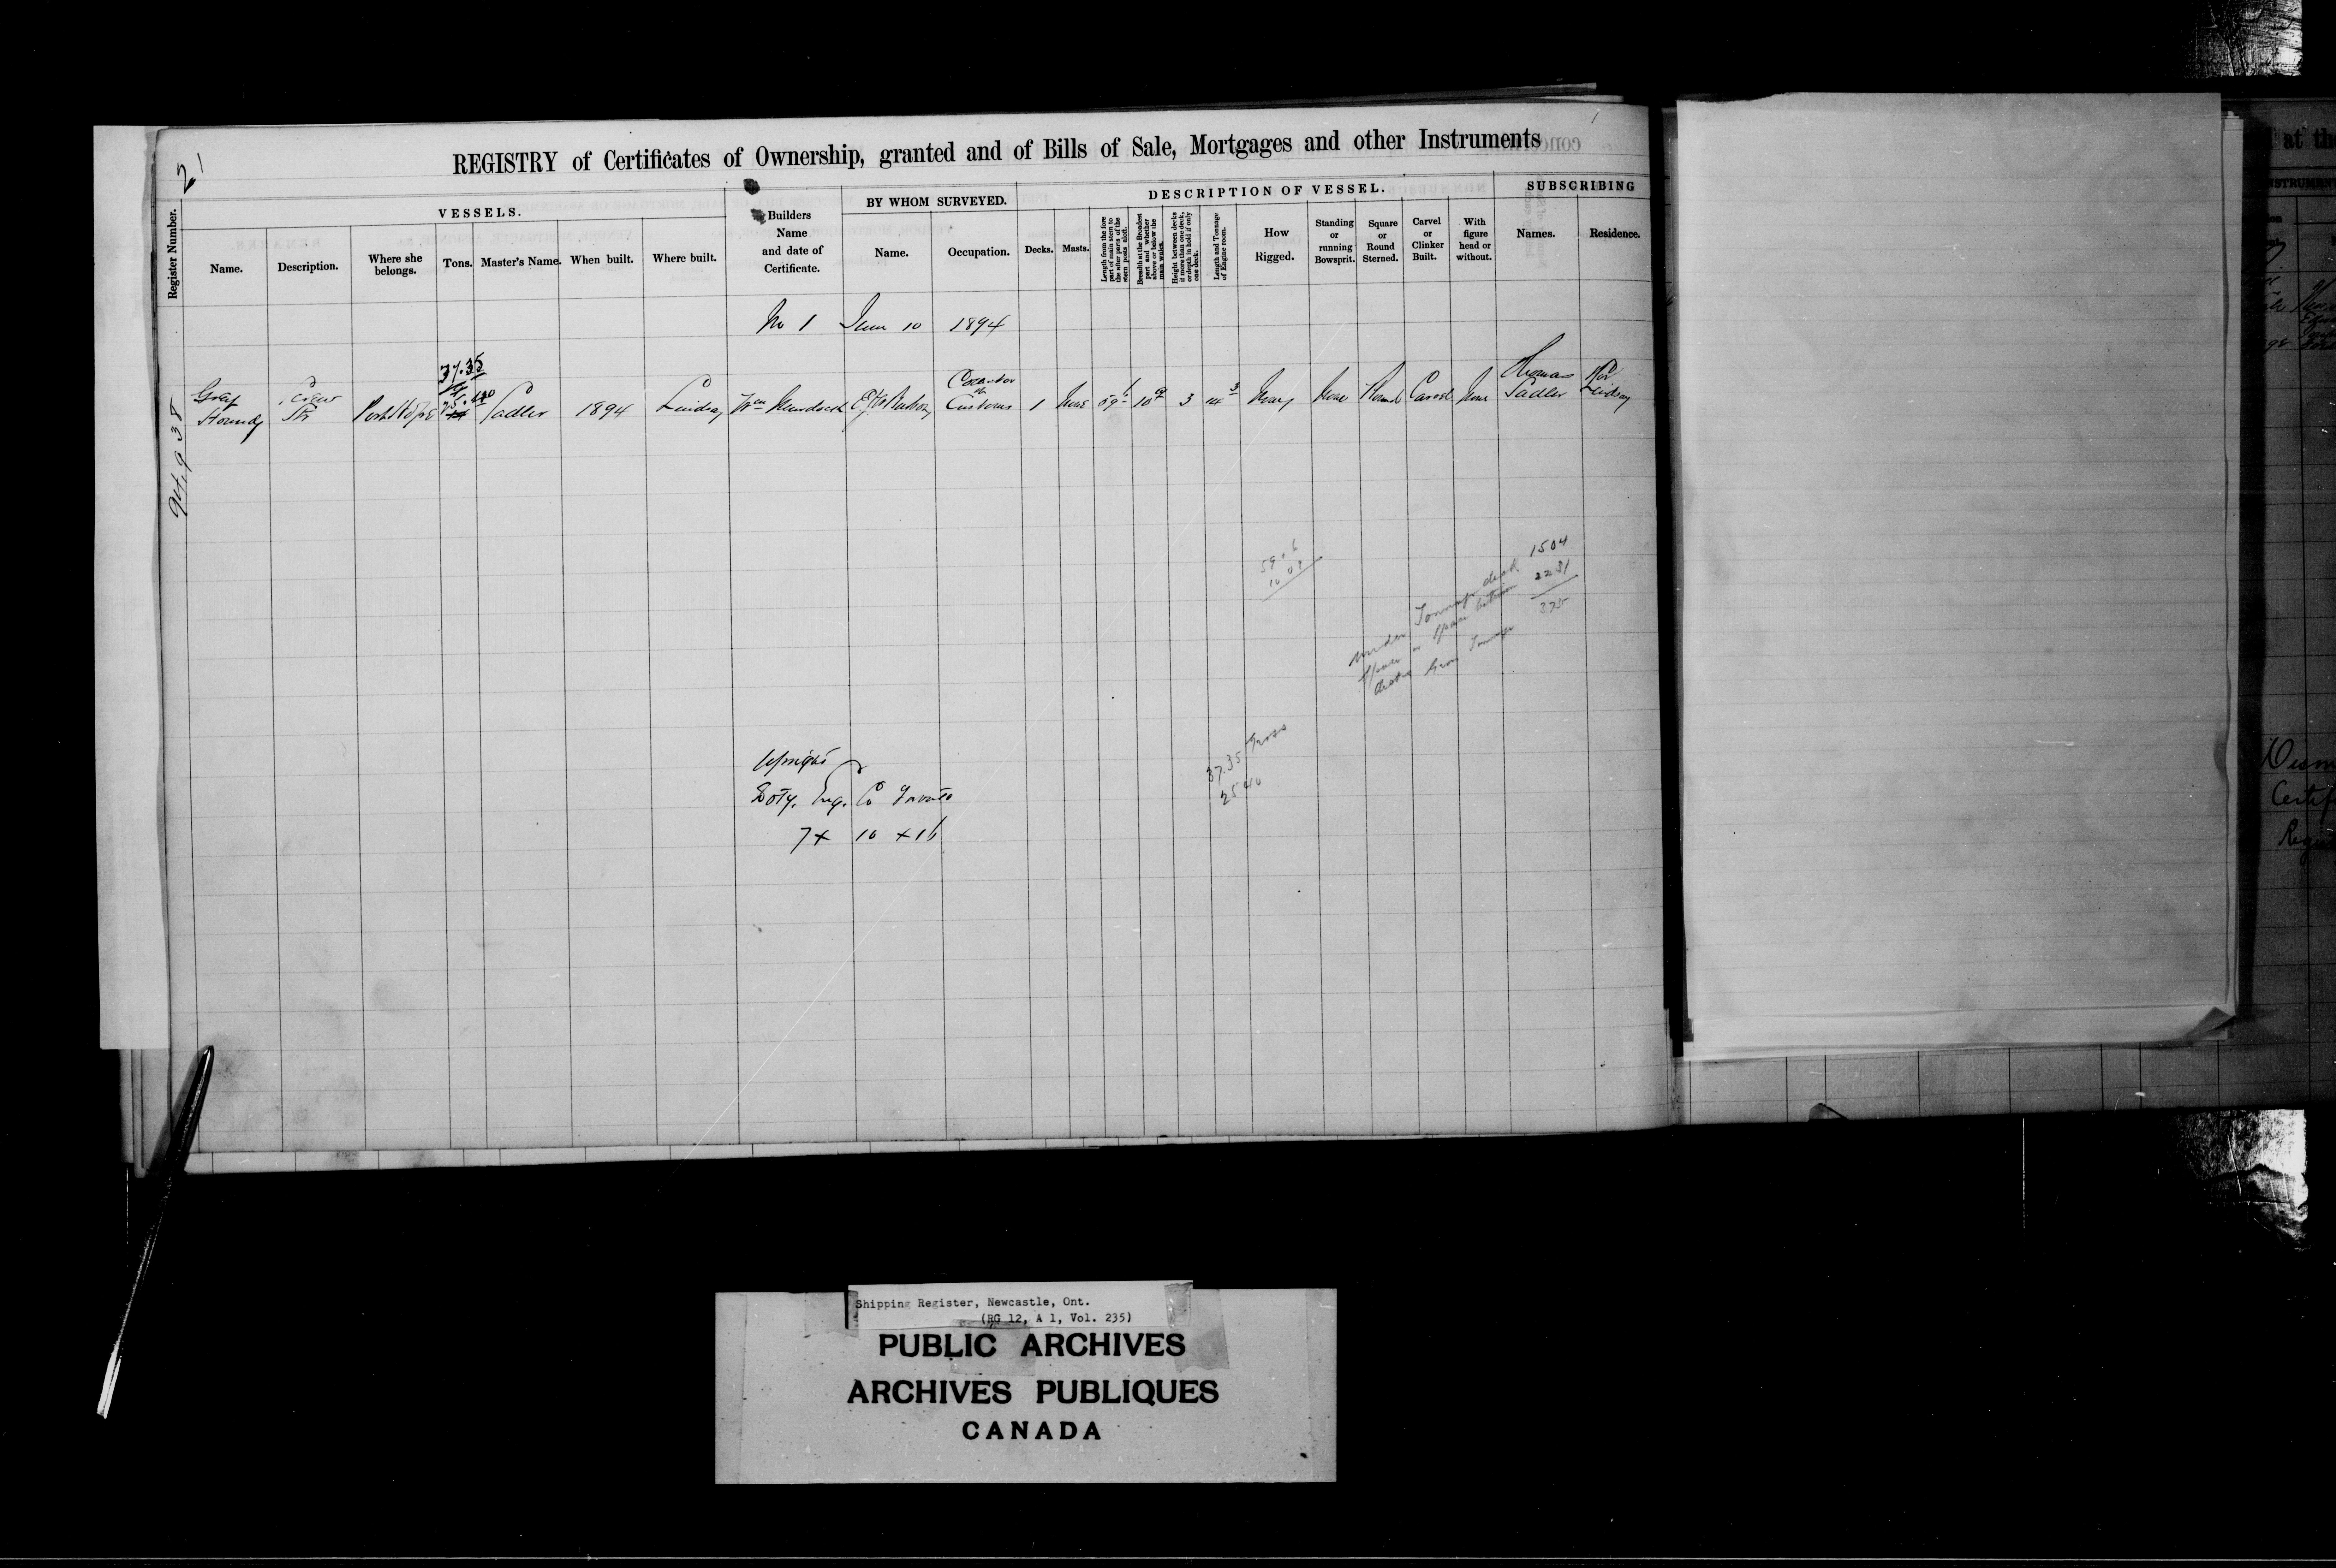 21
REGISTRY of Certificates of Ownership, granted and of Bills of Sale, Mortgages and other Instruments
Register Number.
VESSELS.
Name.
Description.
Where she belongs.
Tons.
Master's Name.
When built.
Where built.
Builders Name and date of Certificate.
BY WHOM SURVEYED.
Name.
Occupation.
DESCRIPTION OF VESSEL.
Decks.
Masts.
Length from the fore part of main stem to the after parts of the stern posts aloft.
Breadth at the Broadest part and whether above or below the main wales.
Height between decks if more than one deck, or depth in hold if only one deck.
Length and Tonnage of Engine room.
How Rigged.
Standing or running Bowsprit.
Square or Round Sterned.
Carvel or Clinker Built.
With figure head or without.
SUBSCRIBING
Names.
Residence.
No 1 June 10 1894
94,938
Grey Hound
Screw Str
Port Hope
37.35
25.40
Sadler
1894
Lindsay
Wm Murdock
Collector Customs
1
None
59 6
10 9
3
None
Round
Carvel
None
Thomas Sadler
Lindsay
59.6
10 09
1504
2231
Under Tonnage deck
Space or Spaces between
decks Gross Tonnage
37.35 Gross
25 40
Upright
Doty. Eng. Co Toronto
7 x 10 x 16
Shipping Register, Newcastle, Ont.
(RG 12, A 1, Vol. 235)
PUBLIC ARCHIVES
ARCHIVES PUBLIQUES
CANADA